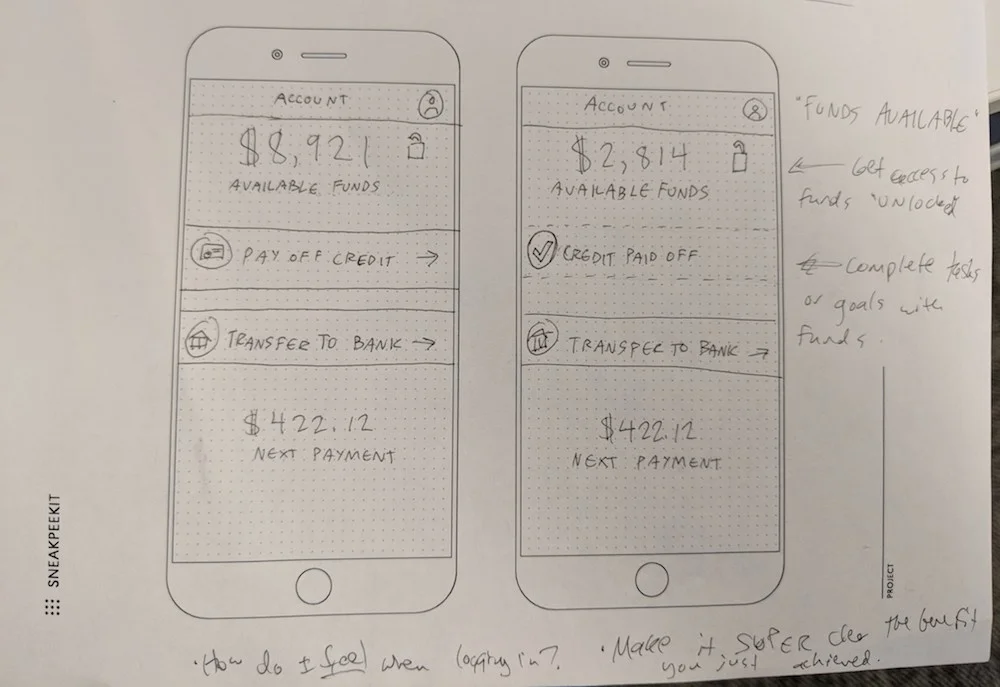 ACCOUNT
$8,921
AVAILABLE FUNDS
PAY OFF CREDIT →
TRANSFER TO BANK →
$422.12
NEXT PAYMENT
ACCOUNT
$2,814
AVAILABLE FUNDS
CREDIT PAID OFF
TRANSFER TO BANK →
$422.12
NEXT PAYMENT
"FUNDS AVAILABLE"
← Get access to
funds "UNlocked
← complete tasks
or goals with
funds.
SNEAKPEEKIT
PROJECT
· How do I feel when logging in?
· Make it SUPER clear the benefit
you just achieved.